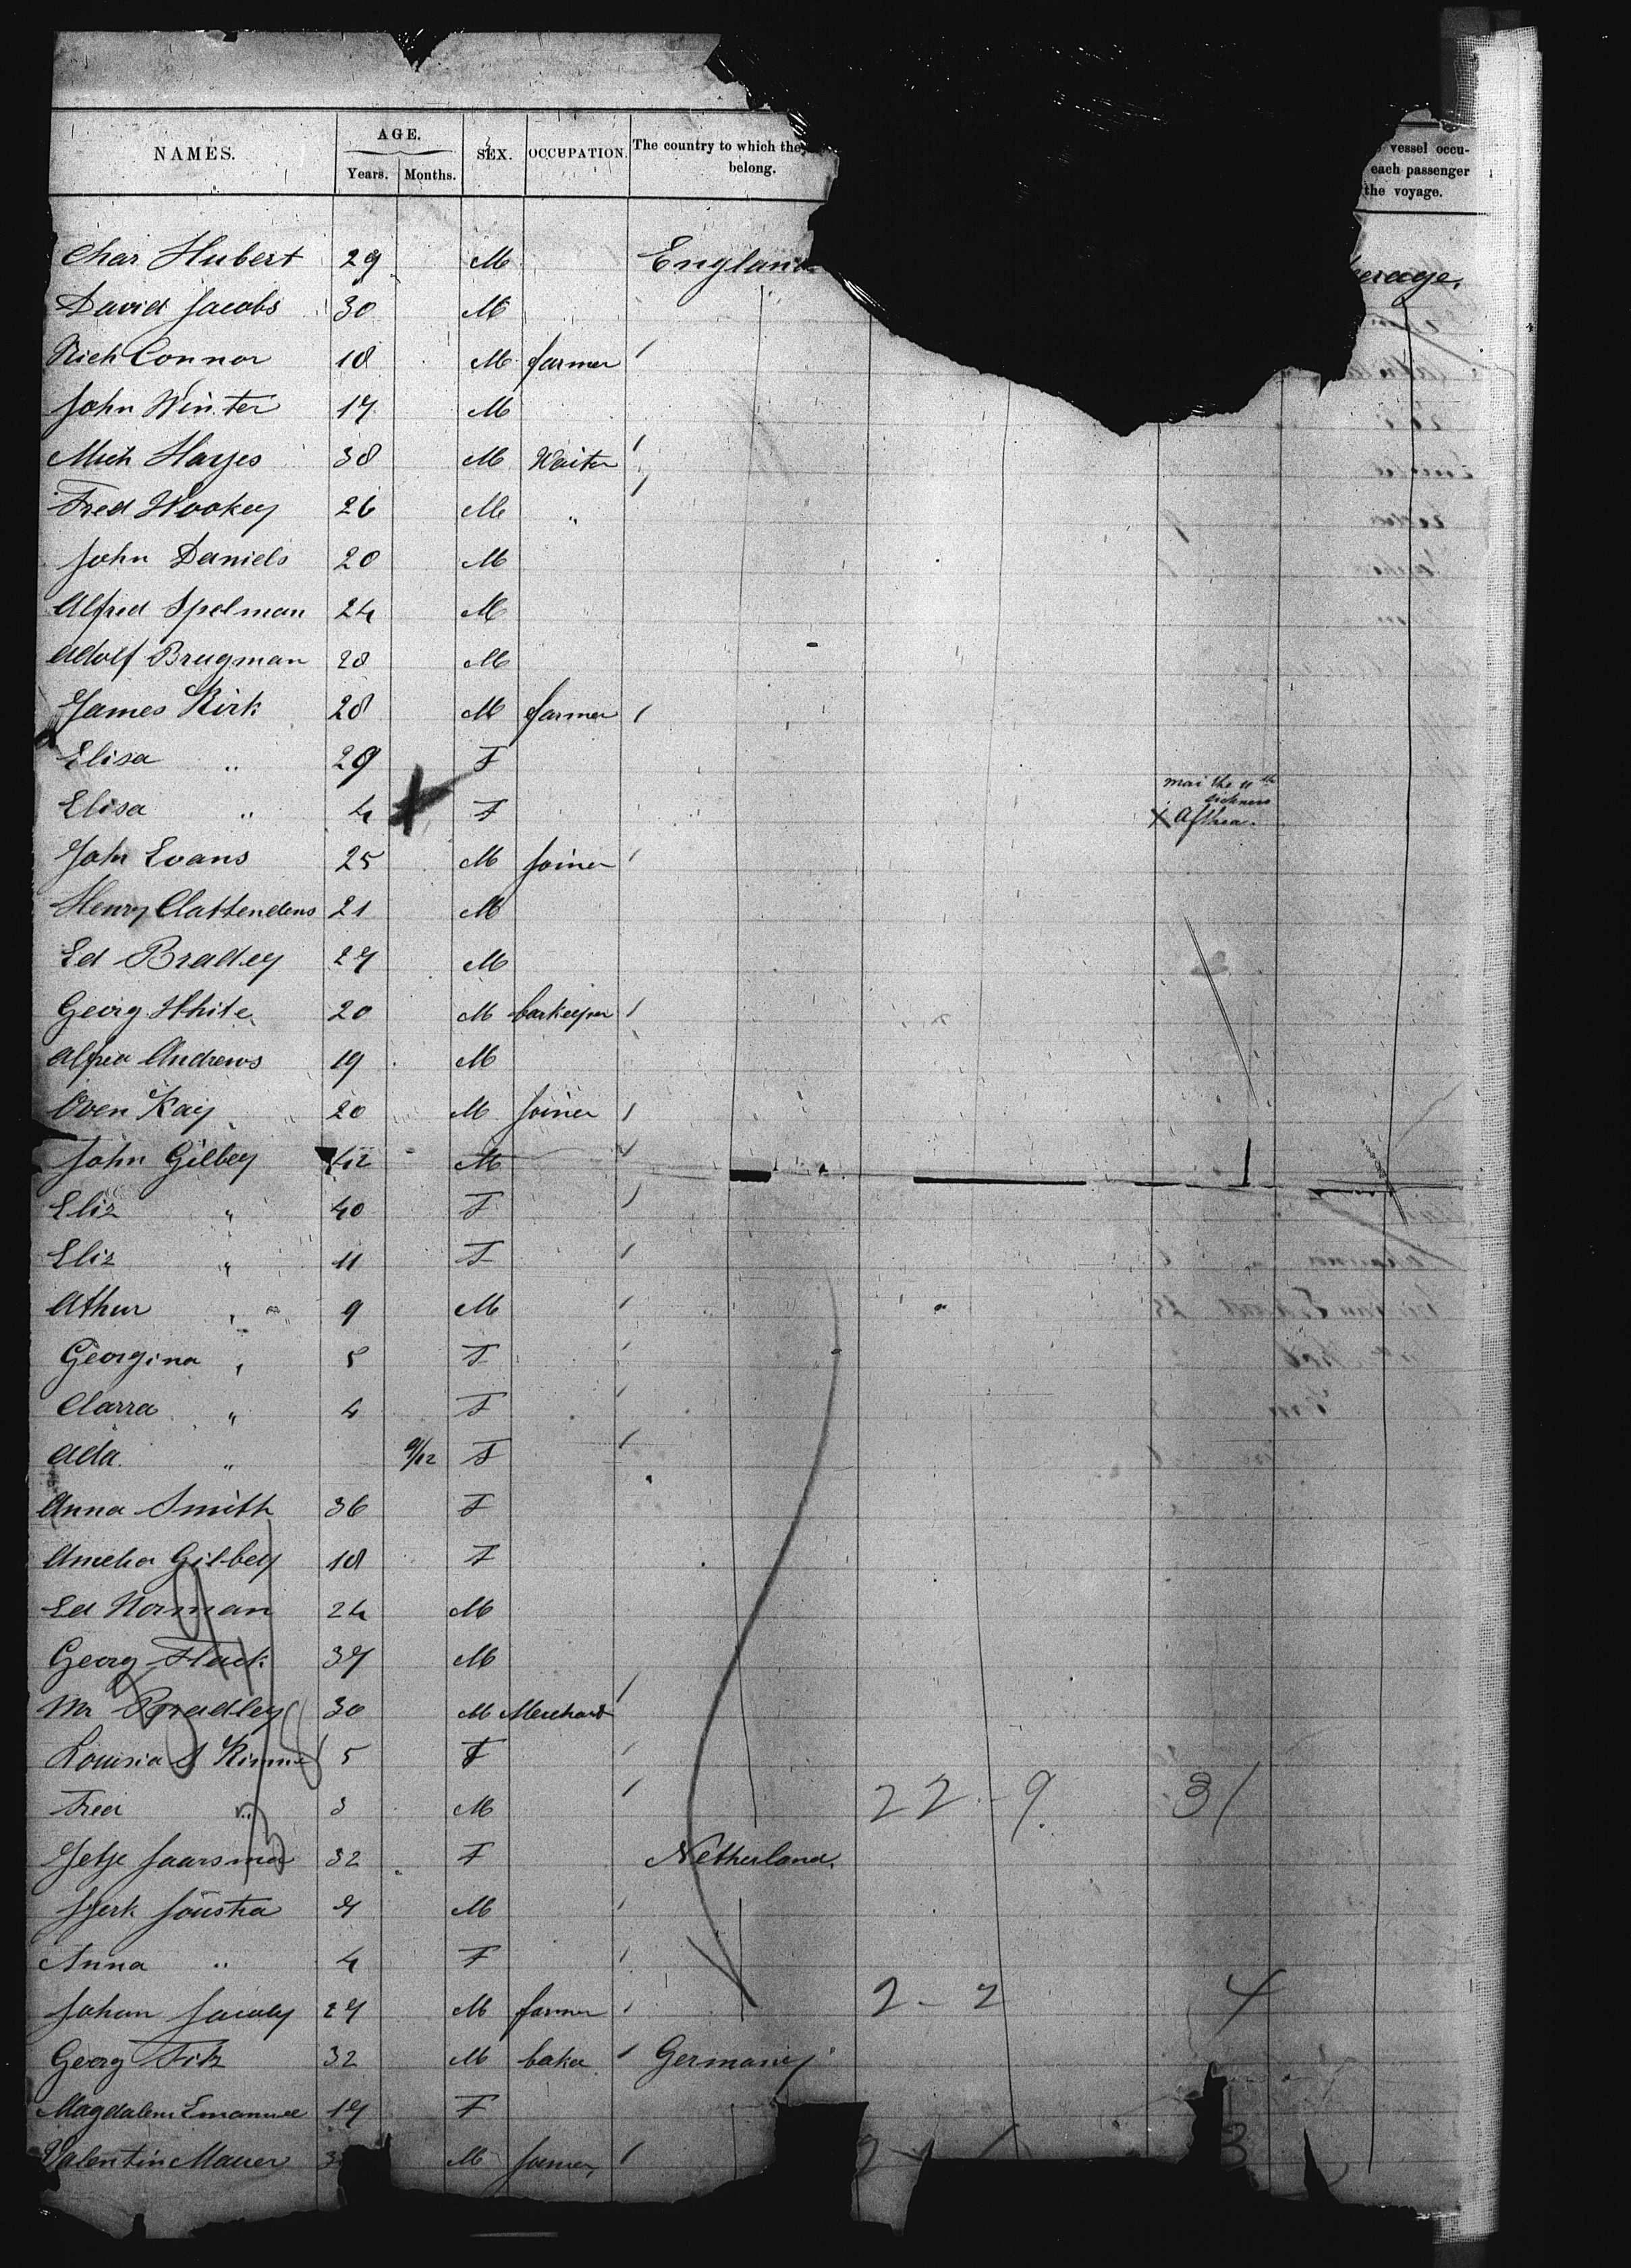 NAMES. AGE. SEX. OCCUPATION. The country to which they belong. vessel occu-
Years. Months. each passenger
the voyage.
Char Hubert 29 M England erage.
David Jacobs 30 M
Rich Connor 18 M farmer
John Winter 17 M
Mich Hayes 38 M Waiter
Fred Hookey 26 M "
John Daniels 20 M
Alfred Spelman 24 M
Adolf Brugman 28 M
James Kirk 28 M farmer
Elisa " 29 F
mai the 11th
sickness
Elisa " 4 X F X Afthea.
John Evans 25 M Joiner
Henry Clattendens 21 M
Ed Bradley 27 M
Georg White 20 M barkeeper
Alfred Andrews 19 M
Oven Kay 20 M Joiner
John Gilbey 42 M
Eliz " 40 F
Eliz " 11 F
Athur " 9 M
Georgina " 5 F
Clarra " 4 F
Ada " 9/12 F
Anna Smith 36 F
Amelia Gilbey 18 F
Ed Norman 24 M
Georg Flack 37 M
Mr Bradley 30 M Merchant
Louisia S 5 F
Fred " 3 M 22 - 9. 31
Jetje Jaarsma 32 F Netherland.
Sjerk Joustra 7 M
Anna " 4 F
Johan Jacoby 27 M farmer 2 - 2 4
Georg Fitz 32 M baker Germany
Magdalena Emanuel 17 F
Valentin Mauer 3 M farmer 3